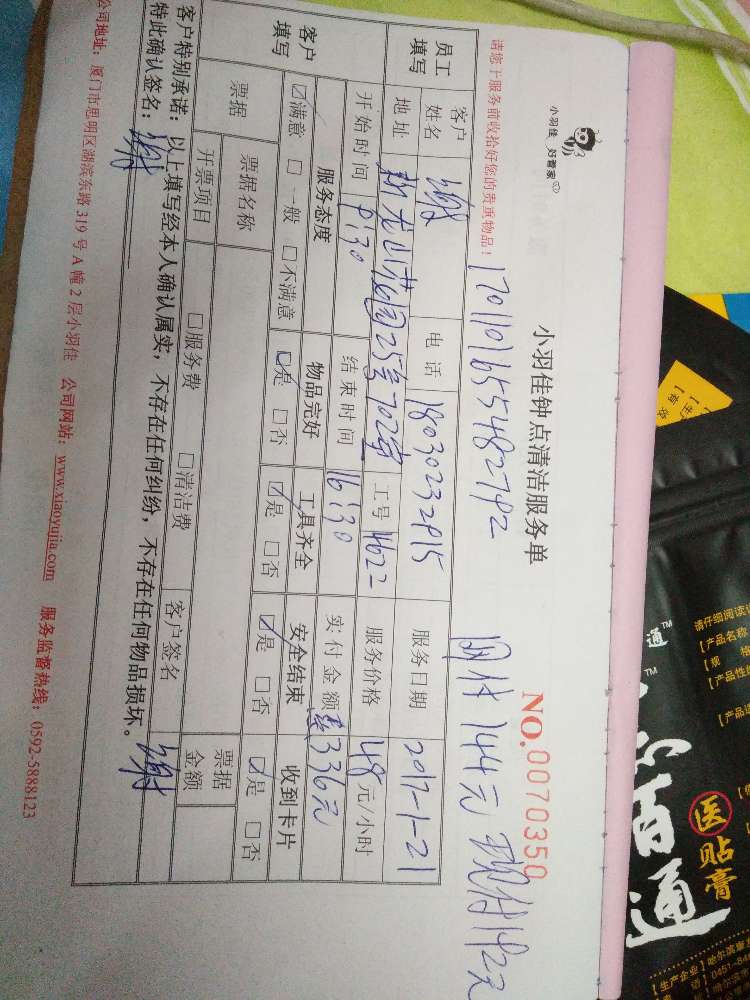 小羽佳 好管家
小羽佳钟点清洁服务单
NO.0070350
请您于服务前收拾好您的贵重物品!
1701101655482792
网付144元 现付192元
员工填写
客户姓名
谢
电话
18030232915
服务日期
2017-1-21
地址
新龙山花园25号702室
工号
4622
服务价格
48元/小时
客户填写
开始时间
9:30
结束时间
16:30
实付金额
336元
服务态度
物品完好
工具齐全
安全结束
收到卡片
☑满意 □一般 □不满意
☑是 □否
☑是 □否
☑是 □否
☑是 □否
票据
票据名称
客户签名
谢
票据金额
开票项目
□服务费 □清洁费
客户特别承诺:以上填写经本人确认属实,不存在任何纠纷,不存在任何物品损坏。
特此确认签名:谢
公司地址:厦门市思明区湖滨东路319号A幢2层小羽佳 公司网站:www.xiaoyujia.com 服务监督热线:0592-5888123
请仔细阅读
【产品名称
【规 格
【产品性
通™
百通
医贴膏
【生产企业】哈尔滨康